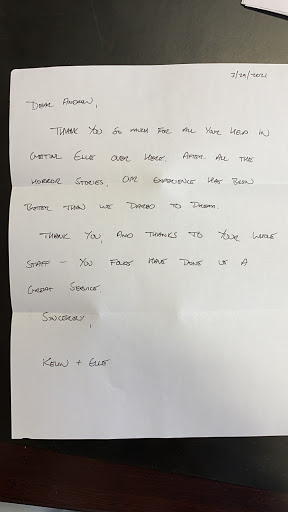 7/29/2021
DEAR ANDREW,
THANK YOU SO MUCH FOR ALL YOUR HELP IN
GETTING ELLE OVER HERE. AFTER ALL THE
HORROR STORIES, OUR EXPERIENCE HAS BEEN
BETTER THAN WE DARED TO DREAM.
THANK YOU, AND THANKS TO YOUR WHOLE
STAFF - YOU FOLKS HAVE DONE US A
GREAT SERVICE.
SINCERELY,
KEVIN + ELLE